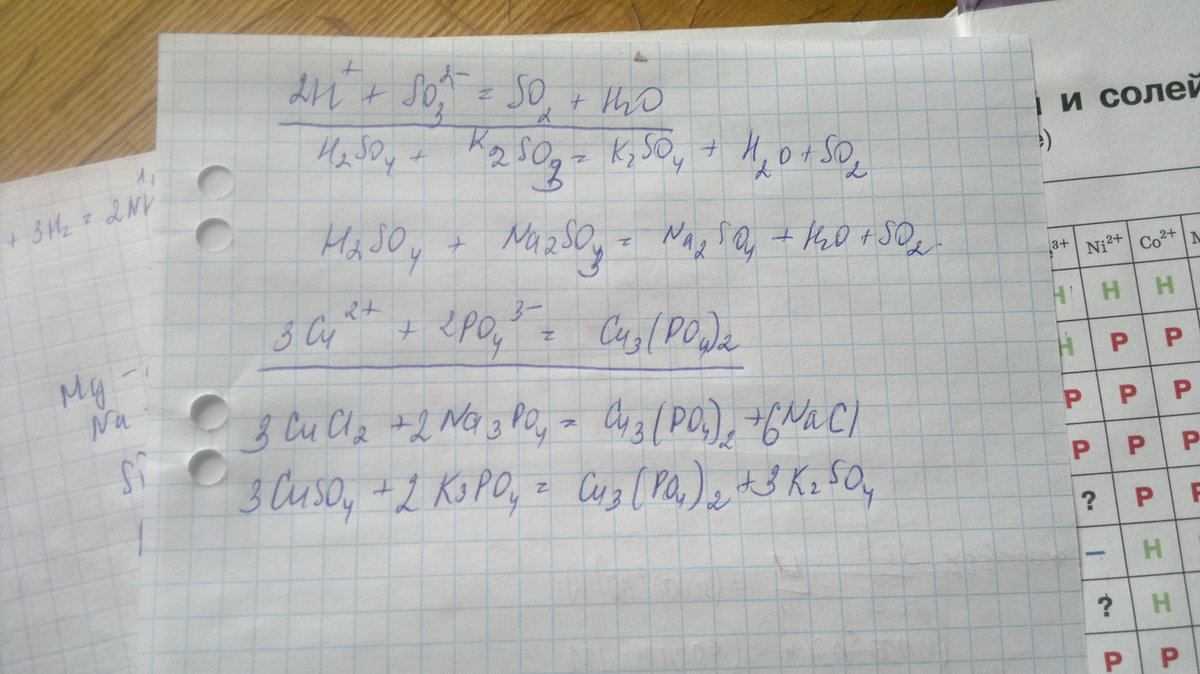 2H⁺ + SO₃²⁻ = SO₂ + H₂O
H₂SO₄ + K₂SO₃ = K₂SO₄ + H₂O + SO₂
H₂SO₄ + Na₂SO₃ = Na₂SO₄ + H₂O + SO₂
3Cu²⁺ + 2PO₄³⁻ = Cu₃(PO₄)₂
3CuCl₂ + 2Na₃PO₄ = Cu₃(PO₄)₂ + 6NaCl
3CuSO₄ + 2K₃PO₄ = Cu₃(PO₄)₂ + 3K₂SO₄
+ 3H₂ = 2N
Mg
Na
Si
и солей
³⁺ Ni²⁺ Co²⁺
Н Н Н
Н Р Р
Р Р Р
Р Р Р
? Р
– Н
? Н
Р Р